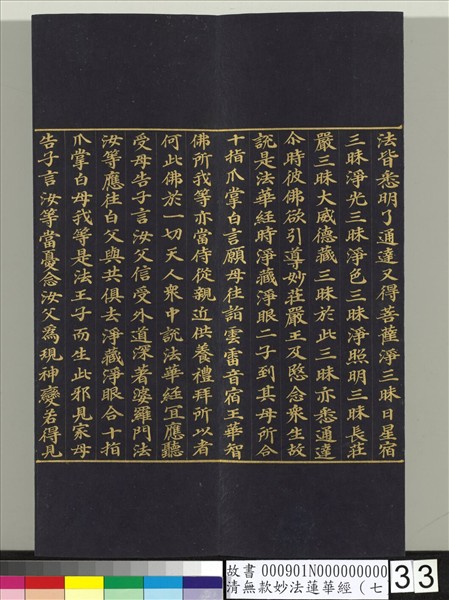 法皆悉明了通達又得菩薩淨三昧日星宿
三昧淨光三昧淨色三昧淨照明三昧長莊
嚴三昧大威德藏三昧於此三昧亦悉通達
尒時彼佛欲引導妙莊嚴王及愍念衆生故
說是法華經時淨藏淨眼二子到其母所合
十指爪掌白言願母往詣雲雷音宿王華智
佛所我等亦當侍從親近供養禮拜所以者
何此佛於一切天人衆中說法華經冝應聽
受母告子言汝父信受外道深著婆羅門法
汝等應往白父與共俱去淨藏淨眼合十指
爪掌白母我等是法王子而生此邪見家母
告子言汝等當憂念汝父爲現神變若得見
故書 000901N000000000
清無款妙法蓮華經（七
33